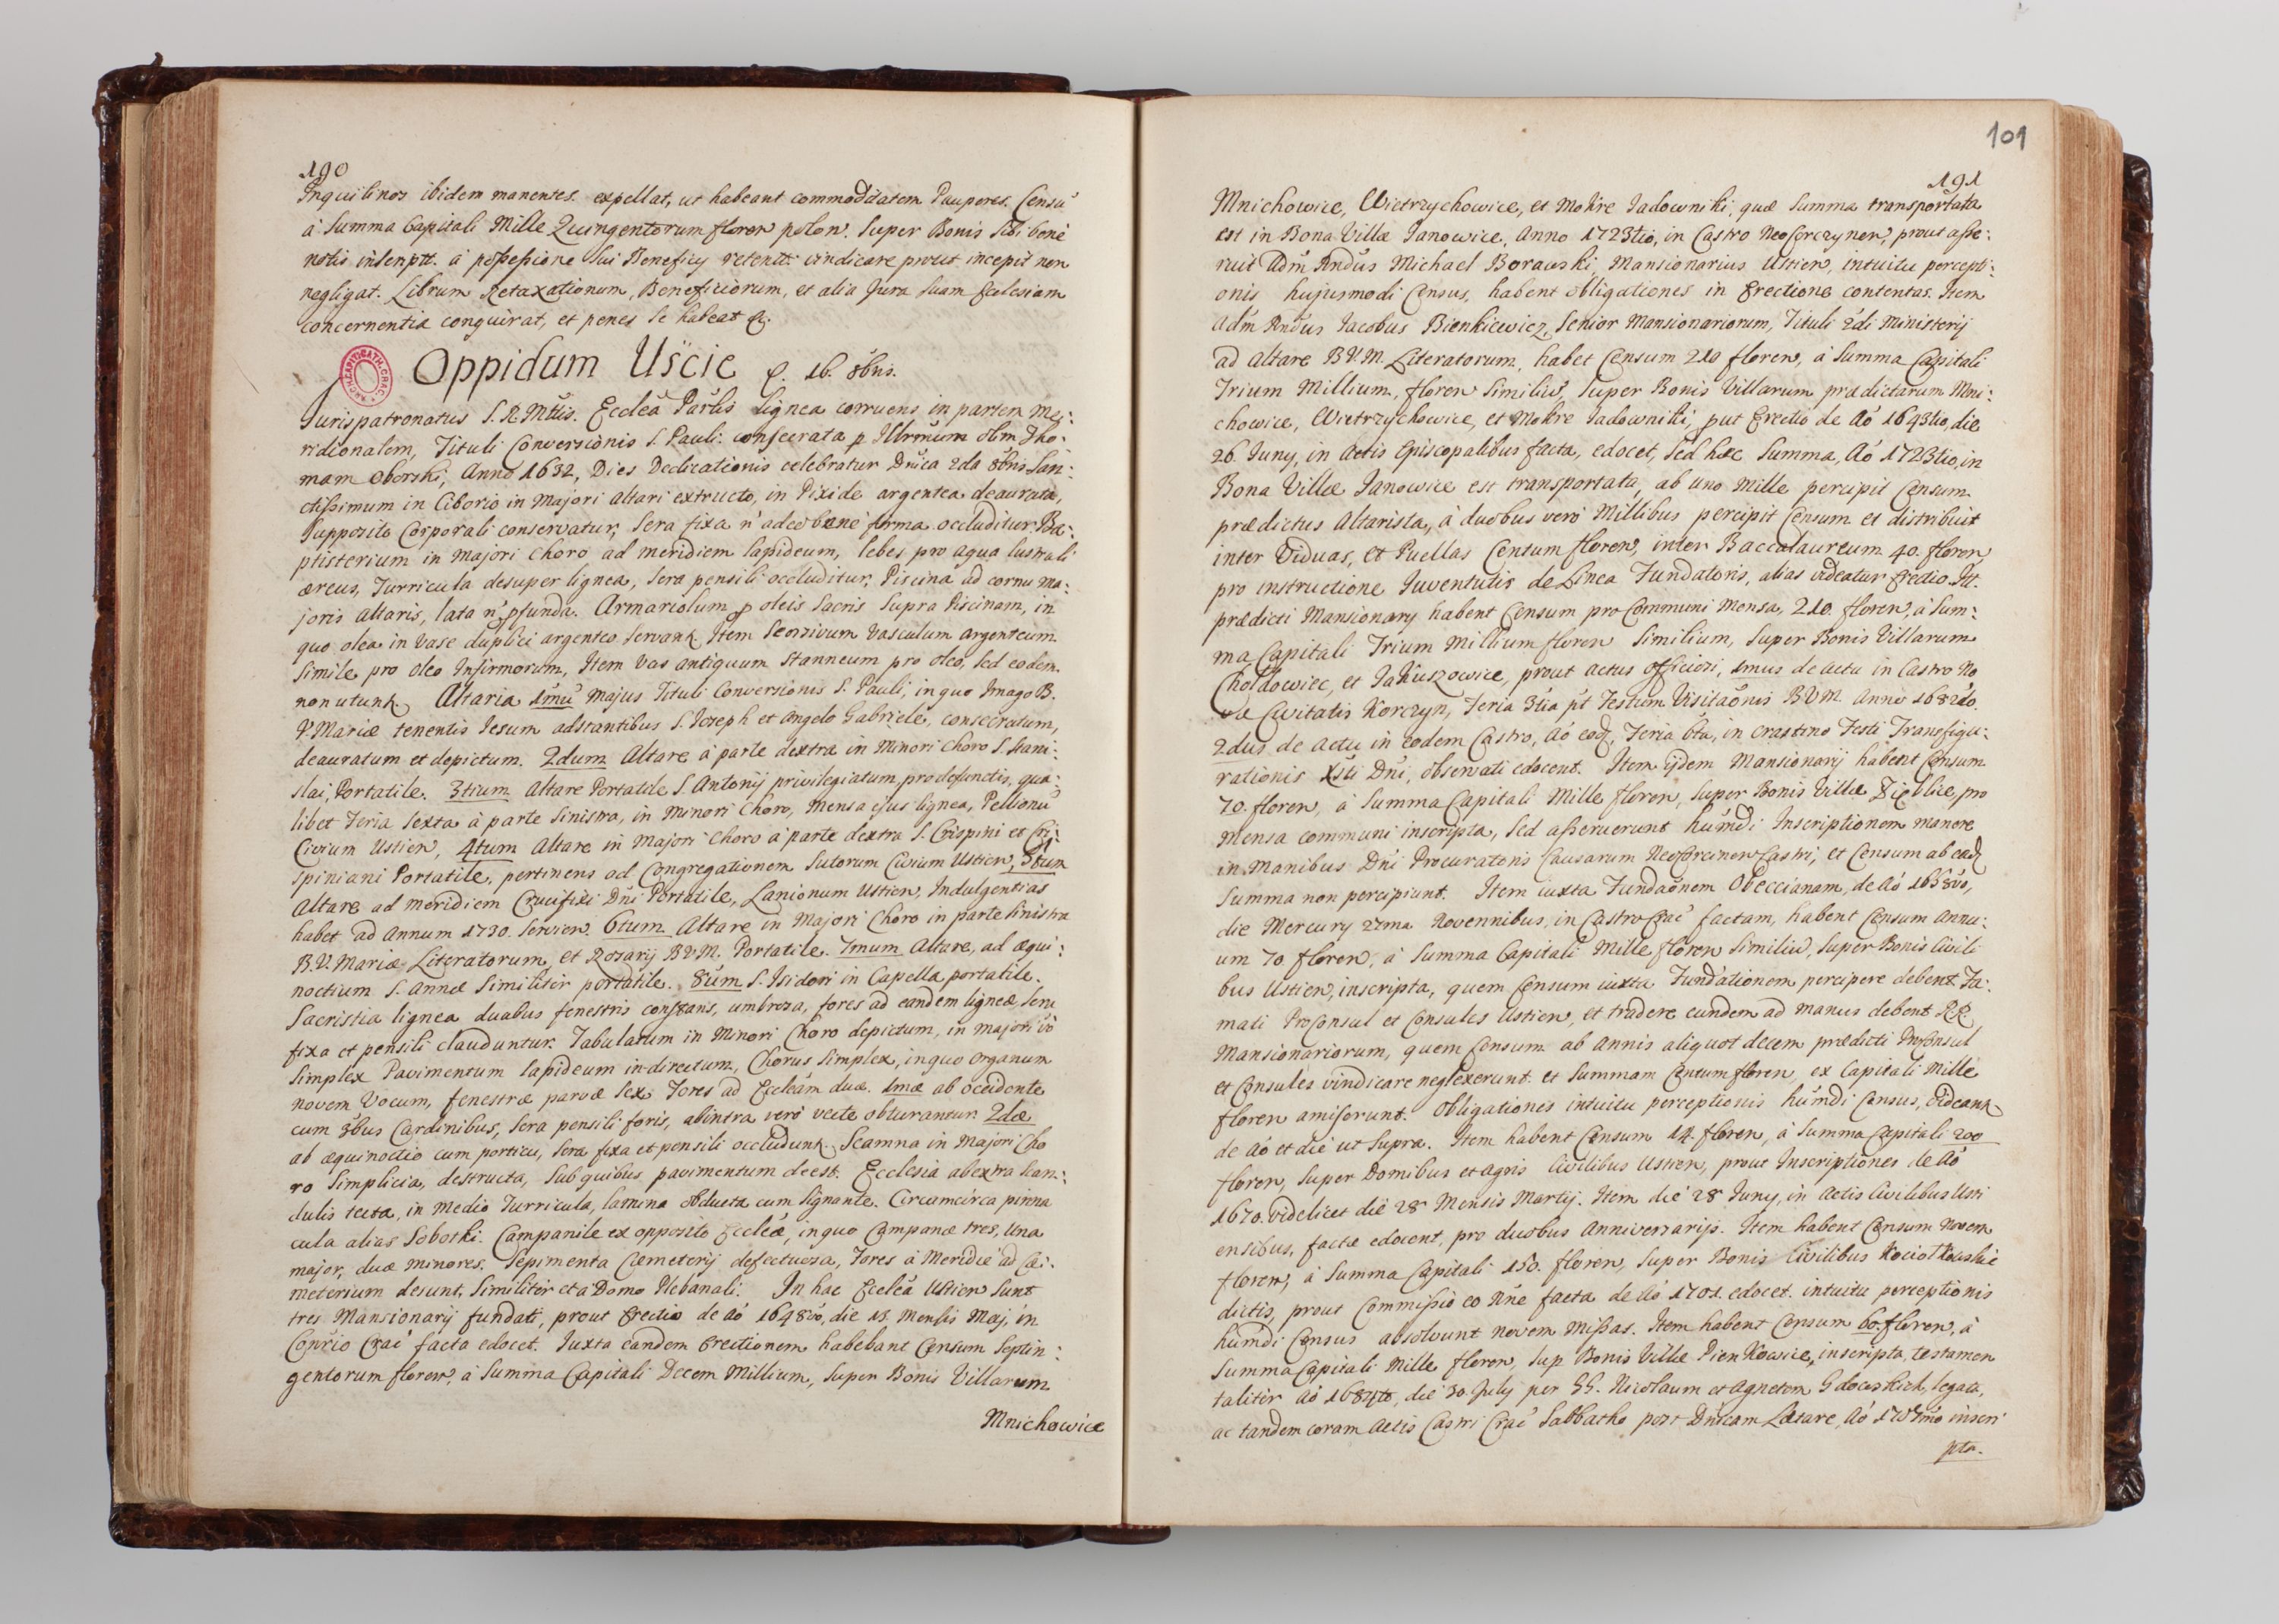 190
Inquilinos ibidem manentes expellat, ut habeant commoditatem Pauperes. Censũ
à Summa Capitali Mille Quingentorum floren polon. Super Bonis Sibi benè
notis inscriptt. à possessione sui Beneficij retentt: vindicare prout incepit non
negligat. Librum Retaxationum, Beneficiorum, et alia Jura suam Ecclesiam
concernentia conquirat, et penes se habeat &.
Oppidum Uście
16. 8bris.
Jurispatronatus S. R. Mttis. Ecclea Parlis lignea corruens in partem Me:
ridionalem, Tituli Conversionis S. Pauli. consecrata p Illrmum olim Tho:
mam Oborski, Anno 1632, Dies Dedicationis celebratur Dnica 2da 8bris San:
ctissimum in Ciborio in Majori altari extructo, in Pixide argentea deaurata,
Supposito Corporali conservatur, Sera fixa n adeo bene firma occluditur. Ba:
ptisterium in majori choro ad meridiem lapideum, lebes pro aqua lustrali
æreus, Turricula desuper lignea, sera pensili occluditur. Piscina ad cornu Ma:
joris altaris, lata n pfunda. Armariolum p oleis Sacris supra Piscinam, in
quo olea in vase duplici argenteo servank. Item Seorsivum vasculum argenteum
simile pro oleo Infirmorum, Item vas antiquum stanneum pro oleo, sed eodem
non utunk. Altaria 1mũ majus Tituli Conversionis S. Pauli, in quo Imago B.
V. Mariæ tenentis Jesum adstantibus S. Joseph et Angelo Gabriele, consecratum,
deauratum et depictum. 2dum Altare à parte dextra in Minori choro S. Stani:
slai, Portatile. 3tium Altare Portatile S. Antonij privilegiatum pro defunctis, qua:
libet Feria Sexta à parte sinistra, in minori Choro, mensa ejus lignea, Pellionũ
Civium Ustien, 4tum Altare in Majori Choro à parte dextra S. Crispini et Cri:
spiniani Portatile, pertinens ad Congregationem Sutorum Civium Ustien, 5tum
Altare ad meridiem Crucifixi Dni Portatile, Lanionum Ustien, Indulgentias
habet ad Annum 1730. Servien. 6tum Altare in Majori Choro in parte sinistra
B. V. Mariæ Literatorum et Rosarij B.V.M. Portatile. 7mum Altare, ad æqui:
noctium S. Annæ similiter portatile. 8um S. Isidori in Capella portatile.
Sacristia lignea duabus fenestris constans, umbrosa, fores ad eandem ligneæ, sera
fixa et pensili clauduntur. Tabulatum in Minori Choro depictum, in majori vo
simplex Pavimentum lapideum in directum, Chorus simplex, in quo Organum
novem Vocum, fenestræ parvæ sex. Fores ad Eccleam duæ. 1mæ ab occidente
cum 3bus Cardinibus, sera pensili foris, abintra verò vecte obturantur. 2dæ
ab æquinoctio cum porticu, sera fixa et pensili occludunk. Scamna in Majori Cho
ro Simplicia, destructa, sub quibus pavimentum deest. Ecclesia abextra scan:
dulis tecta, in medio Turricula, lamina obducta cum signante. Circumcirca pinna
cula alias Sobotki. Campanile ex opposito Eccleæ, in quo Campanæ tres, Una
major, duæ minores. Sepimenta Cæmeterij defectuosa, Fores à Meridie ad Cæ:
meterium desunt, similiter et à Domo Plebanali. In hac Ecclea Ustien sunt
tres Mansionarij fundati, prout Erectio de Aó 1648vo, die 13. Mensis Maij, in
Consrio Crac facta edocet. Juxta eandem Erectionem habebant Censum Septin:
gentorum floren, à Summa Capitali Decem Millium, Super Bonis Villarum
Mnichowice
101
191
Mnichowice, Wietrzychowice, et Mokre Jadowniki, quæ Summa transportata
est in Bona Villæ Janowice, Anno 1723tio, in Castro NeoCorczynen, prout asse:
ruit Adm Rndus Michael Borawski, Mansionarius Ustien, intuitu percepti:
onis hujusmodi Census, habent obligationes in Erectione contentas. Item
Adm Rndus Jacobus Bienkiewicz, Senior Mansionariorum, Tituli 2di Ministerij
ad altare B.V.M. Literatorum, habet Censum 210 floren, à Summa Capitali
Trium Millium, floren Similiũ, Super Bonis Villarum prædictarum Mni:
chowice, Wietrzychowice, et Mokre Jadowniki, put Erectio de Aó 1643tio, die
26. Juny, in Actis Episcopalibus facta, edocet, sed hæc Summa, Aó 1723tio, in
Bona Villæ Janowice est transportata, ab uno Mille percipit Censum
prædictus Altarista, à duobus verò Millibus percipit Censum et distribuit
inter Viduas, et Puellas Centum floren, inter Baccalaureum 40. floren
pro instructione Juventutis de Linea Fundatoris, alias videatur Erectio. Itt.
prædicti Mansionary habent Censum pro Communi Mensa, 210. floren, à Sum:
ma Capitali Trium Millium floren Similium, Super Bonis Villarum
Choldowiec, et Jakuszowice, prout actus Officiosi, 1mus de actu in Castro No
væ Civitatis Korczyn, Feria 3tia pt Festum Visitaõnis B.V.M. Anno 1682do.
2dus de actu in eodem Castro, Aó eod, Feria 6ta, in crastino Festi Transfigu:
rationis Xsti Dni, observati edocent. Item ijdem Mansionarij habent Censum
70. floren, à Summa Capitali Mille floren, Super Bonis Villæ pro
mensa communi inscripta, sed asseruerunt humdi Inscriptionem manere
in Manibus Dni Procuratoris Causarum NeoCorcinen Castri, et Censum ab ead
Summa non percipiunt. Item iuxta Fundaõnem Obeccianam, de Aó 1658vo,
die Mercury 27ma Novembris, in Castro Crac factam, habent Censum Annu:
um 70 floren, à Summa Capitali Mille floren Similiũ, Super Bonis Civili
bus Ustien, inscripta, quem Censum iuxta Fundationem percipere debent Fa:
mati ProConsul et Consules Ustien, et tradere eundem ad manus debent RR
Mansionariorum, quem Censum ab annis aliquot decem prædicti ProConsul
et Consules vindicare neglexerunt. et Summam Centum floren, ex Capitali Mille
floren amiserunt. Obligationes intuitu perceptionis humdi Census, Videank
de Aó et die ut supra. Item habent Censum 14. floren, à Summa Capitali 200
floren, Super Domibus et Agris Civilibus Ustien, prout Inscriptiones de Aó
1670. videlicet die 28 Mensis Martij. Item die 28 Juny, in Actis Civilibus Usti
ensibus, factæ edocent, pro duobus Anniversarijs. Item habent Censum Novem
floren, à Summa Capitali 150. floren, Super Bonis Civilibus
dictis, prout Commissio eo Nne facta de Aó 1701. edocet. intuitu perceptionis
humdi Census absolvunt novem Missas. Item habent Censum 60. floren, à
Summa Capitali Mille floren, Sup Bonis Villæ Pienkowice, inscripta, testamen
taliter Aó die 30. July per GG. Nicolaum et Agnetem legata,
ac tandem coram Actis Castri Crac Sabbatho post Dnicam Lætare, Aó inscri
pta.